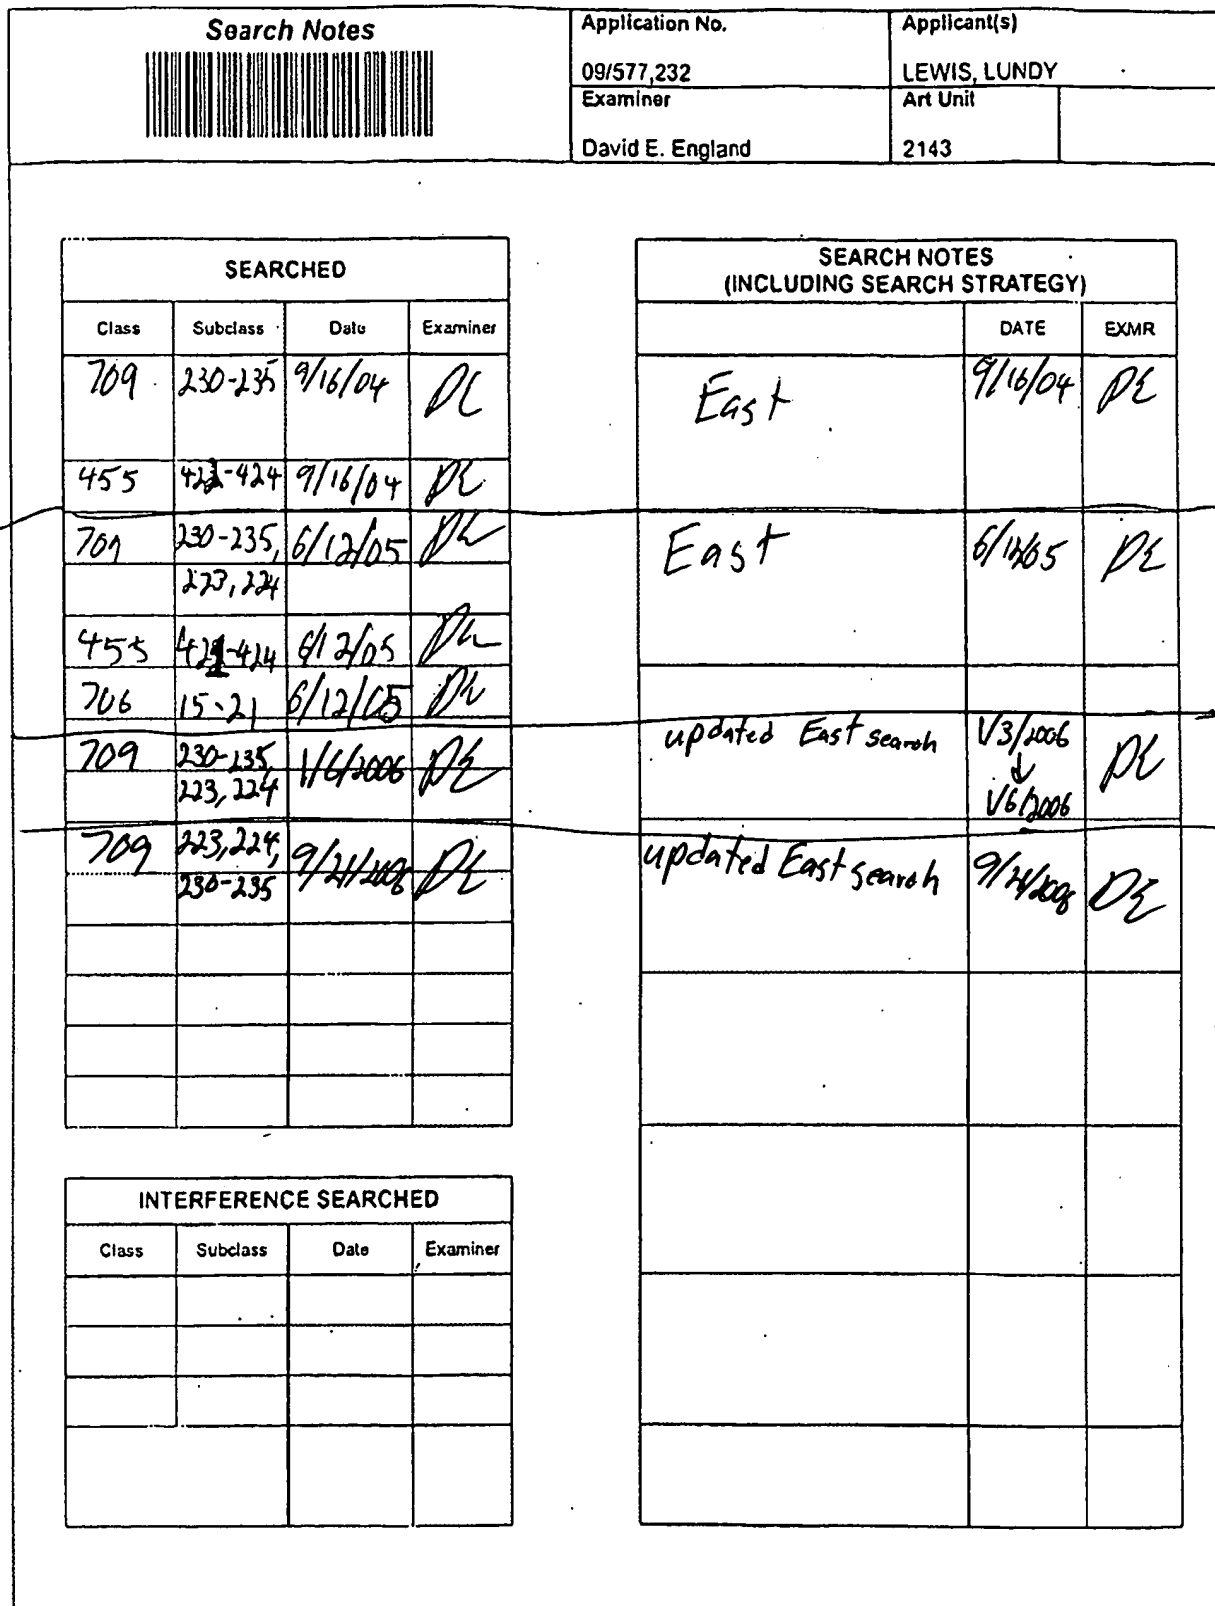 Search Notes
Application No.
Applicant(s)
09/577,232
LEWIS, LUNDY
Examiner
Art Unit
David E. England
2143
SEARCHED
Class Subclass Date Examiner
709 230-235 9/16/04 DE
455 422-424 9/16/04 DE
709 230-235, 6/12/05 DE
223, 224
455 421-424 6/12/05 DE
706 15-21 6/12/05 DE
709 230-235, 1/6/2006 DE
223, 224
709 223, 224, 9/21/2006 DE
230-235
SEARCH NOTES
(INCLUDING SEARCH STRATEGY)
DATE EXMR
East 9/16/04 DE
East 6/12/05 DE
updated East search 1/3/2006 DE
↓
1/6/2006
updated East search 9/21/2006 DE
INTERFERENCE SEARCHED
Class Subclass Date Examiner